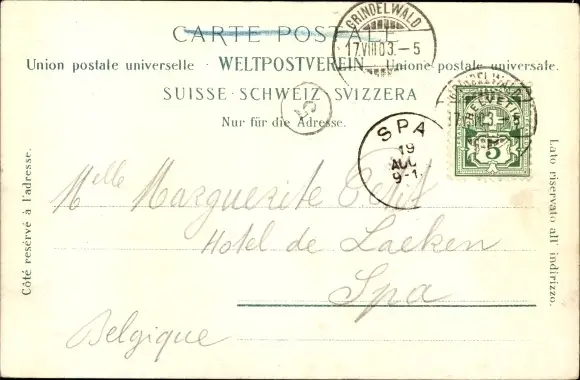 GRINDELWALD
17.VIII.03.-5
CARTE POSTALE
Union postale universelle · WELTPOSTVEREIN · Unione postale universale.
SUISSE · SCHWEIZ · SVIZZERA
Nur für die Adresse.
HELVETIA
5
SPA
19
AUG
9-1.
Côté reservé à l'adresse.
Lato riservato all' indirizzo.
Melle Marguerite Petit
Hotel de Laeken
Spa
Belgique